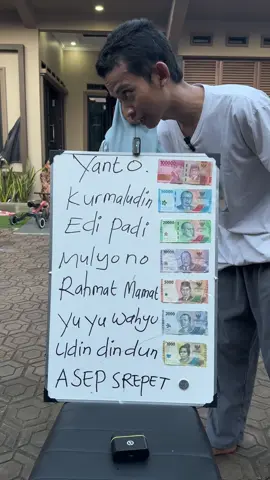 Yanto. 100000
Kurmaludin
Edi padi
Mulyono
Rahmat Mamat
Yu yu wahyu
Udin dindun
ASEP SREPET